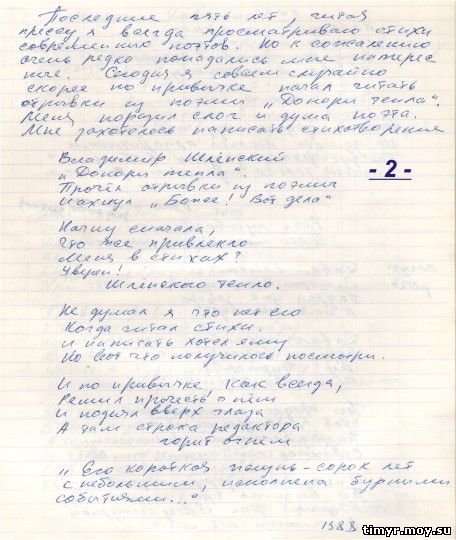 Последние пять лет, читая
прессу я всегда просматриваю стихи
современных поэтов. Но к сожалению
очень редко попадались мне интерес
ные. Сегодня я совсем случайно
скорее по привычке начал читать
отрывки из поэмы „Доноры тепла“.
Меня поразил слог и дума поэта.
Мне захотелось написать стихотворение
Владимир Шленский
„Доноры тепла“.
- 2 -
Прочёл отрывки из поэмы
И ахнул „Боже! Вот дела“
Начну сначала,
Что же привлекло
Меня в стихах?
Уверен!
Шленского тепло.
Не думал я что нет его
Когда читал стихи.
И написать хотел ему
Но вот что получилось посмотри.
И по привычке, как всегда,
Решил прочесть о нём
И поднял вверх глаза
А там строка редактора
горит огнём
„Его короткая жизнь - сорок лет
с небольшим, исполнена бурными
событиями..."
1988
timyr.moy.su